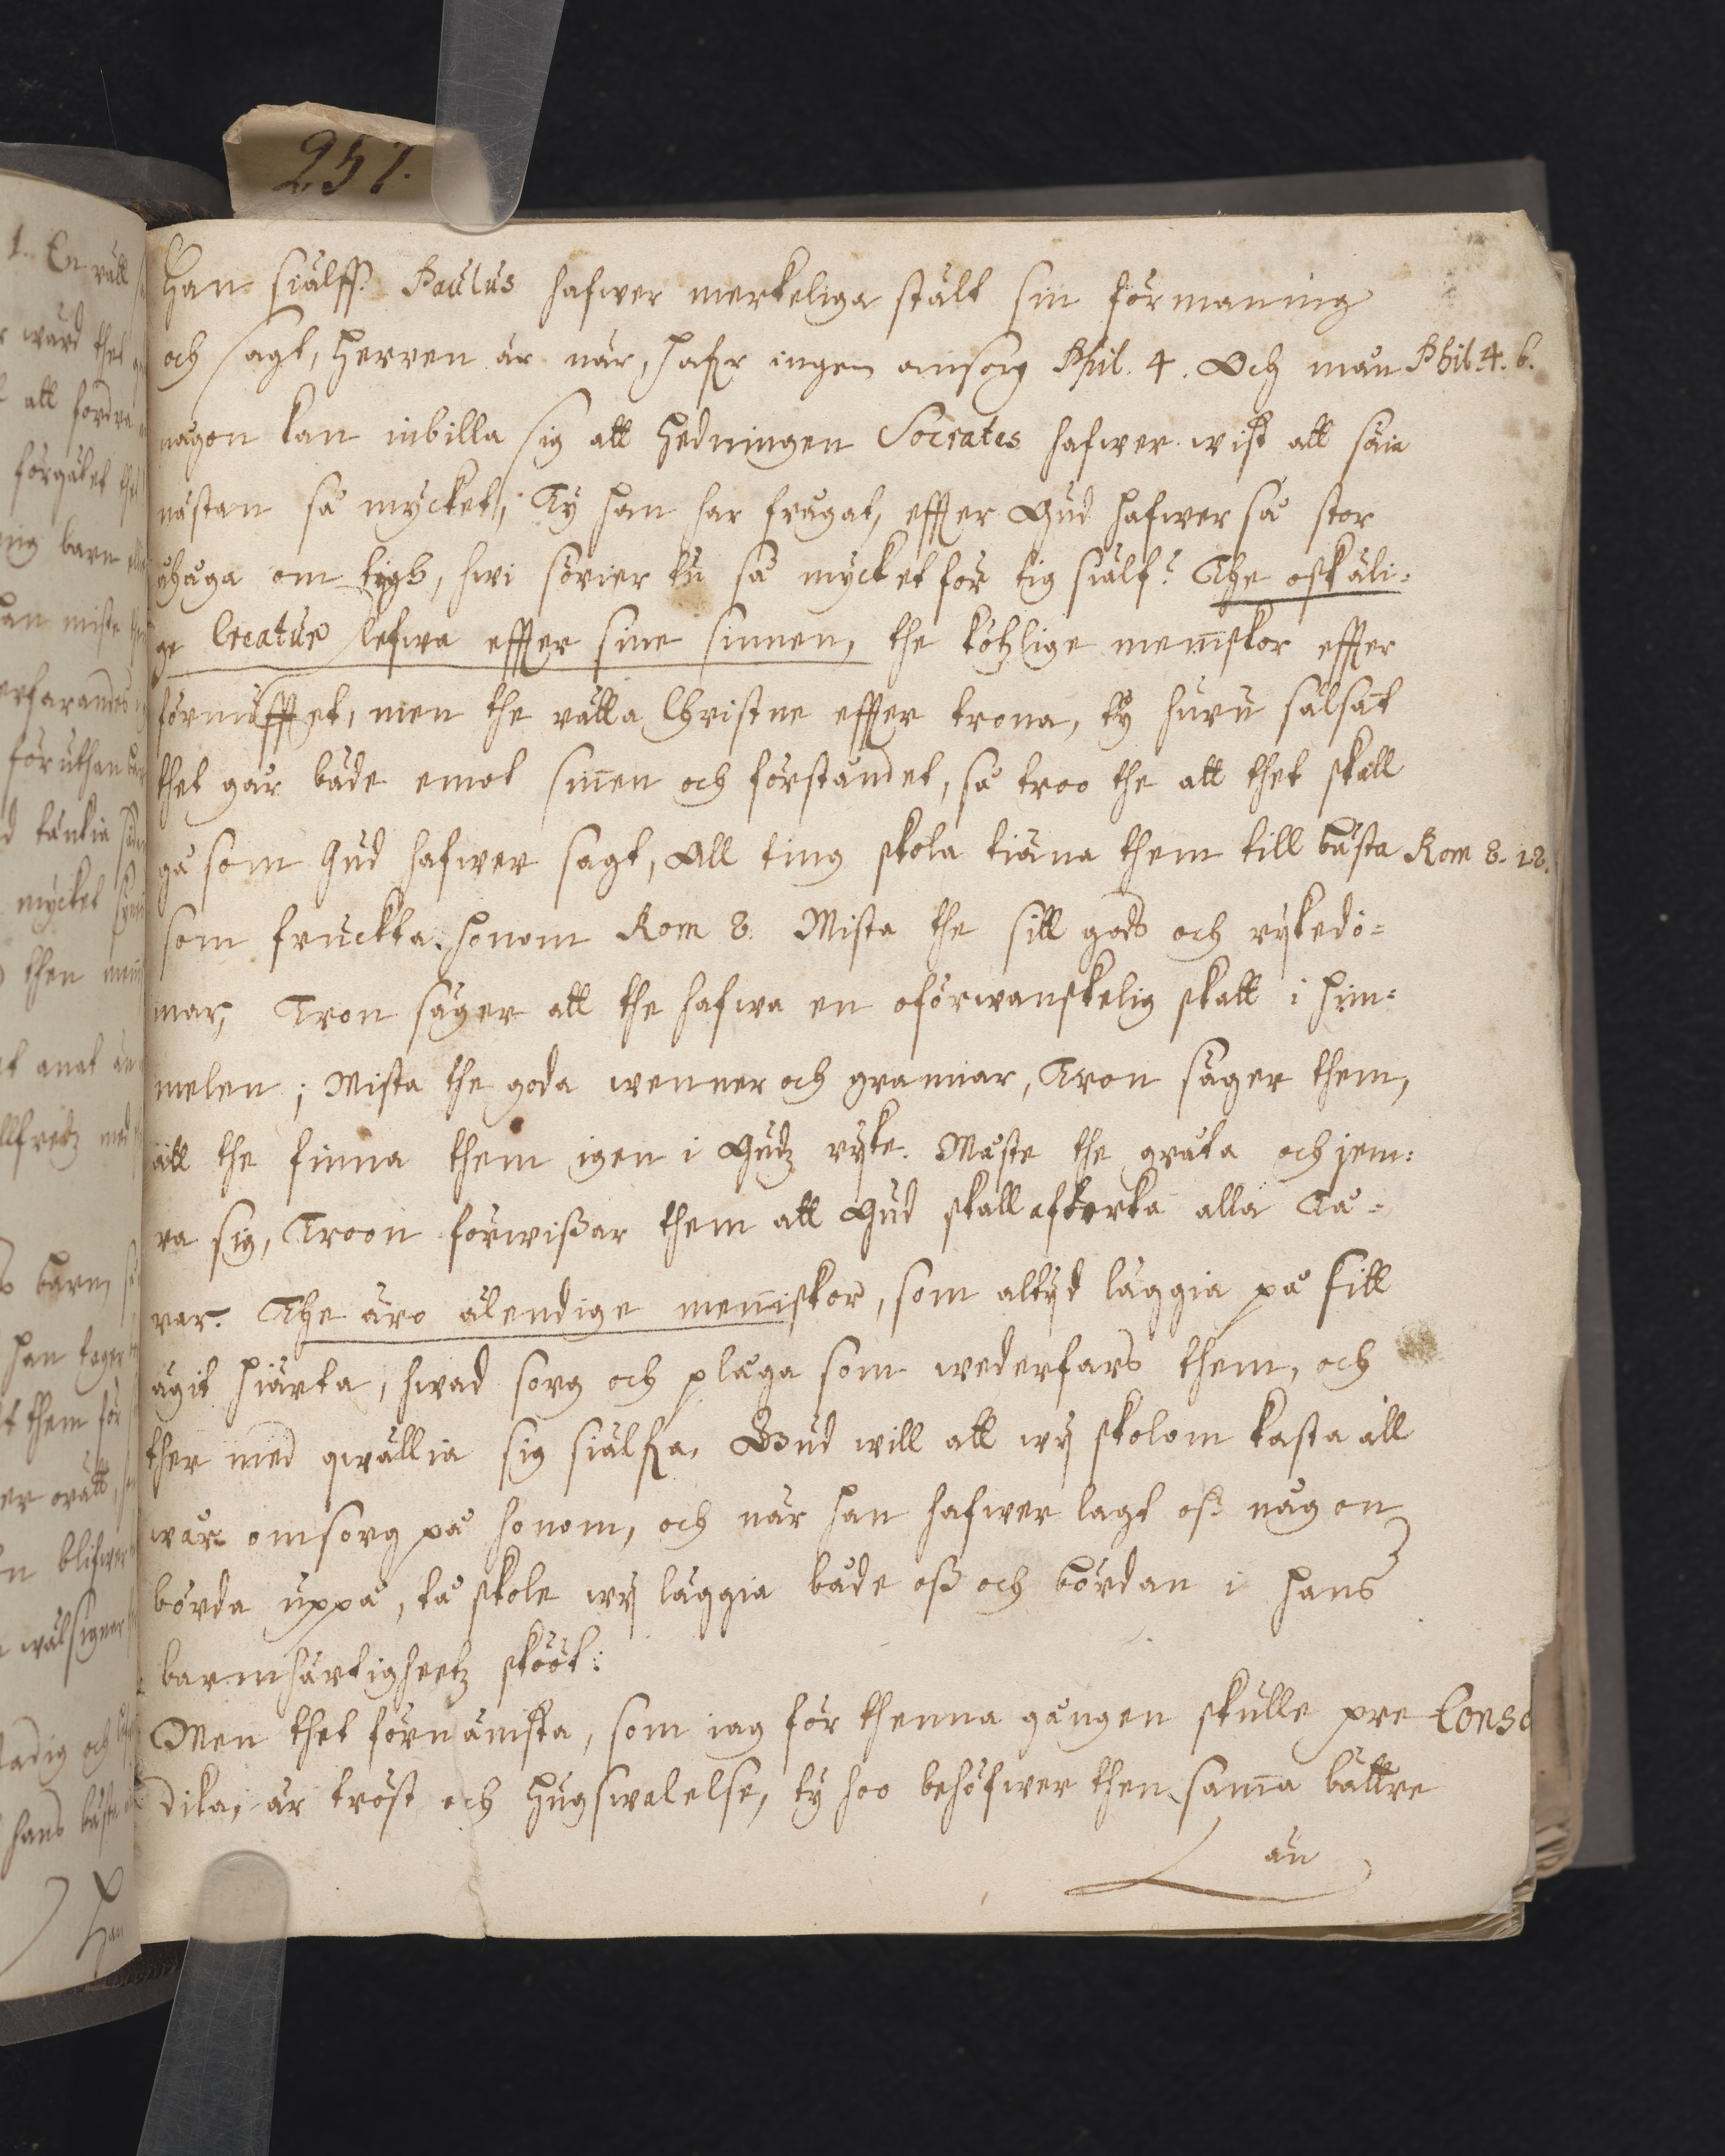 257.
Han siälff. Paulus hafwer merkeliga stält sin förmaning
och sagt, Herren är när, hafr ingen omsorg Phil. 4. Och man Phil. 4. 6.
någon kan inbilla sig att Hedningen Socrates hafwer wist att säia
nästan så mycket; Ty han har frågat, effter Gud hafwer så stor
åhåga om tigh, hwi sörier tu så mycket för tig siälf? The oskäli=
ge Creatur lefwa effter sine sinnen, the kötzlige menniskor effter
förnufftet, men the rätta Christne effter trona, ty huru sälsat
thet går både emot sinnen och förståndet, så troo the att thet skall
gå som Gud hafwer sagt, All ting skola tiäna them till bästa Rom 8. 28.
som fruckta honom Rom 8. Mista the sitt gods och rykedo=
mar, Tron säger att the hafwa en oförwanskelig skatt i him=
melen; Mista the goda wenner och grannar, Tron säger them,
att the finna them igen i Gudz ryke. Måste the gråta och jem=
ra sig, Troon förwißar them att Gud skall aftorka alla Tå=
rar. The äro älendige menniskor, som altyd läggia på sitt
ägit hiärta, hwad sorg och plåga som wederfars them, och
ther med qwällia sig siälfa. Gud will att wy skolom kasta all
wår omsorg på honom, och när han hafwer lagt oß någon
börda uppå, tå skole wy läggia både oß och bördan i hans
barmhärtigheetz skööt:
Men thet förnämsta, som iag för thenna gången skulle pre Conso
dika, är tröst och hugswalelse, ty hoo behöfwer then samma bättre
än